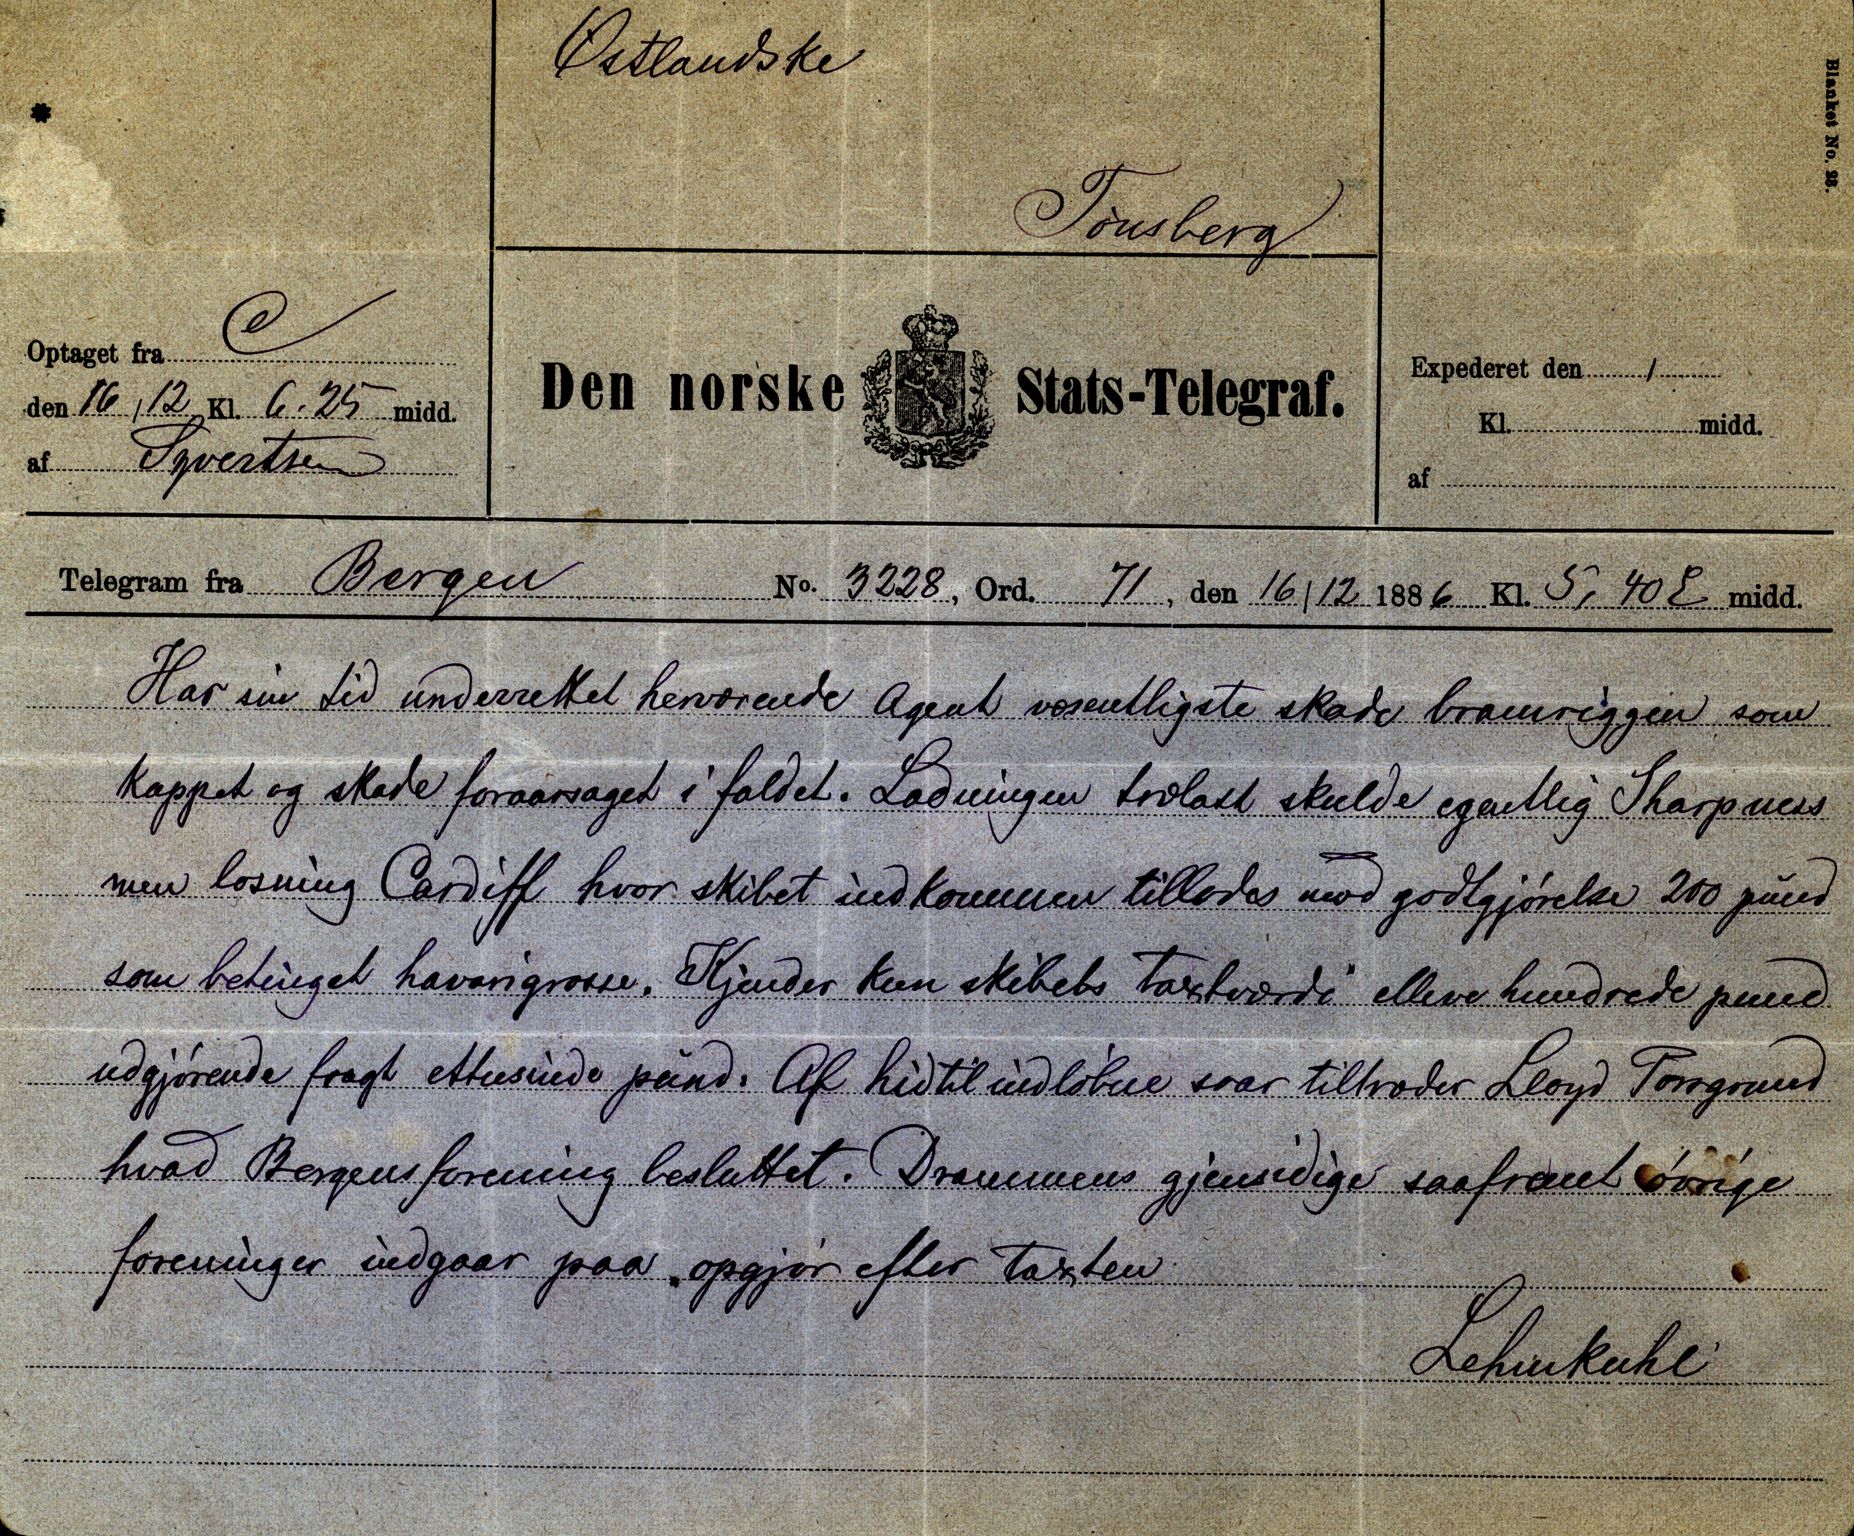 Østlandske
Tønsberg
Blanket No. 23.
Optaget fra C
den 16/12 Kl. 6.25 midd.
af Syvertsen
Den norske Stats-Telegraf.
Expederet den / 
Kl. midd.
af
Telegram fra Bergen No. 3228, Ord. 71, den 16/12 1886 Kl. 5,40 E midd.
Har sin tid underrettet herværende Agent væsentligste skade bramriggen som
kappet og skade foraarsaget i faldet. Ladningen trælast skulde egentlig Sharpness
men losning Cardiff hvor skibet indkommen tillodes mod godtgjørelse 200 pund
som betinget havarigrosse. Kjender kun skibets taxtværdi elleve hundrede pund
udgjørende fragt ettusinde pund. Af hidtil indløbne svar tiltræder Lloyd Porsgrund
hvad Bergens forening besluttet. Drammens gjensidige saafremt øvrige
foreninger indgaar paa opgjør efter taxten
Lehmkuhl